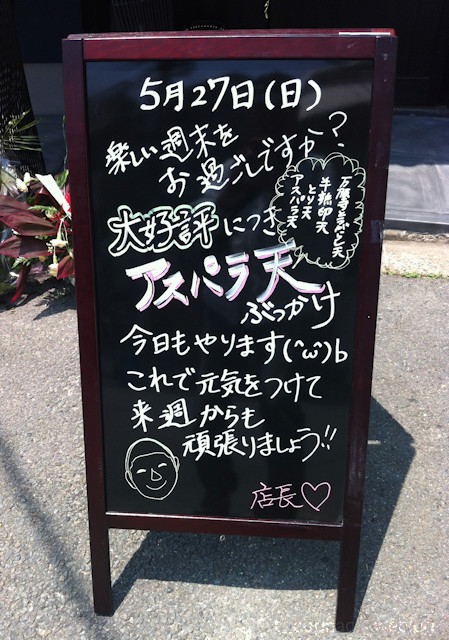 5月27日(日)
楽しい週末を
お過ごしですか?
万願寺とうがらし天
半熟卵天
とり天
アスパラ天
大好評につき
アスパラ天
ぶっかけ
今日もやります(^ω^)b
これで元気をつけて
来週からも
頑張りましょう!!
店長♡